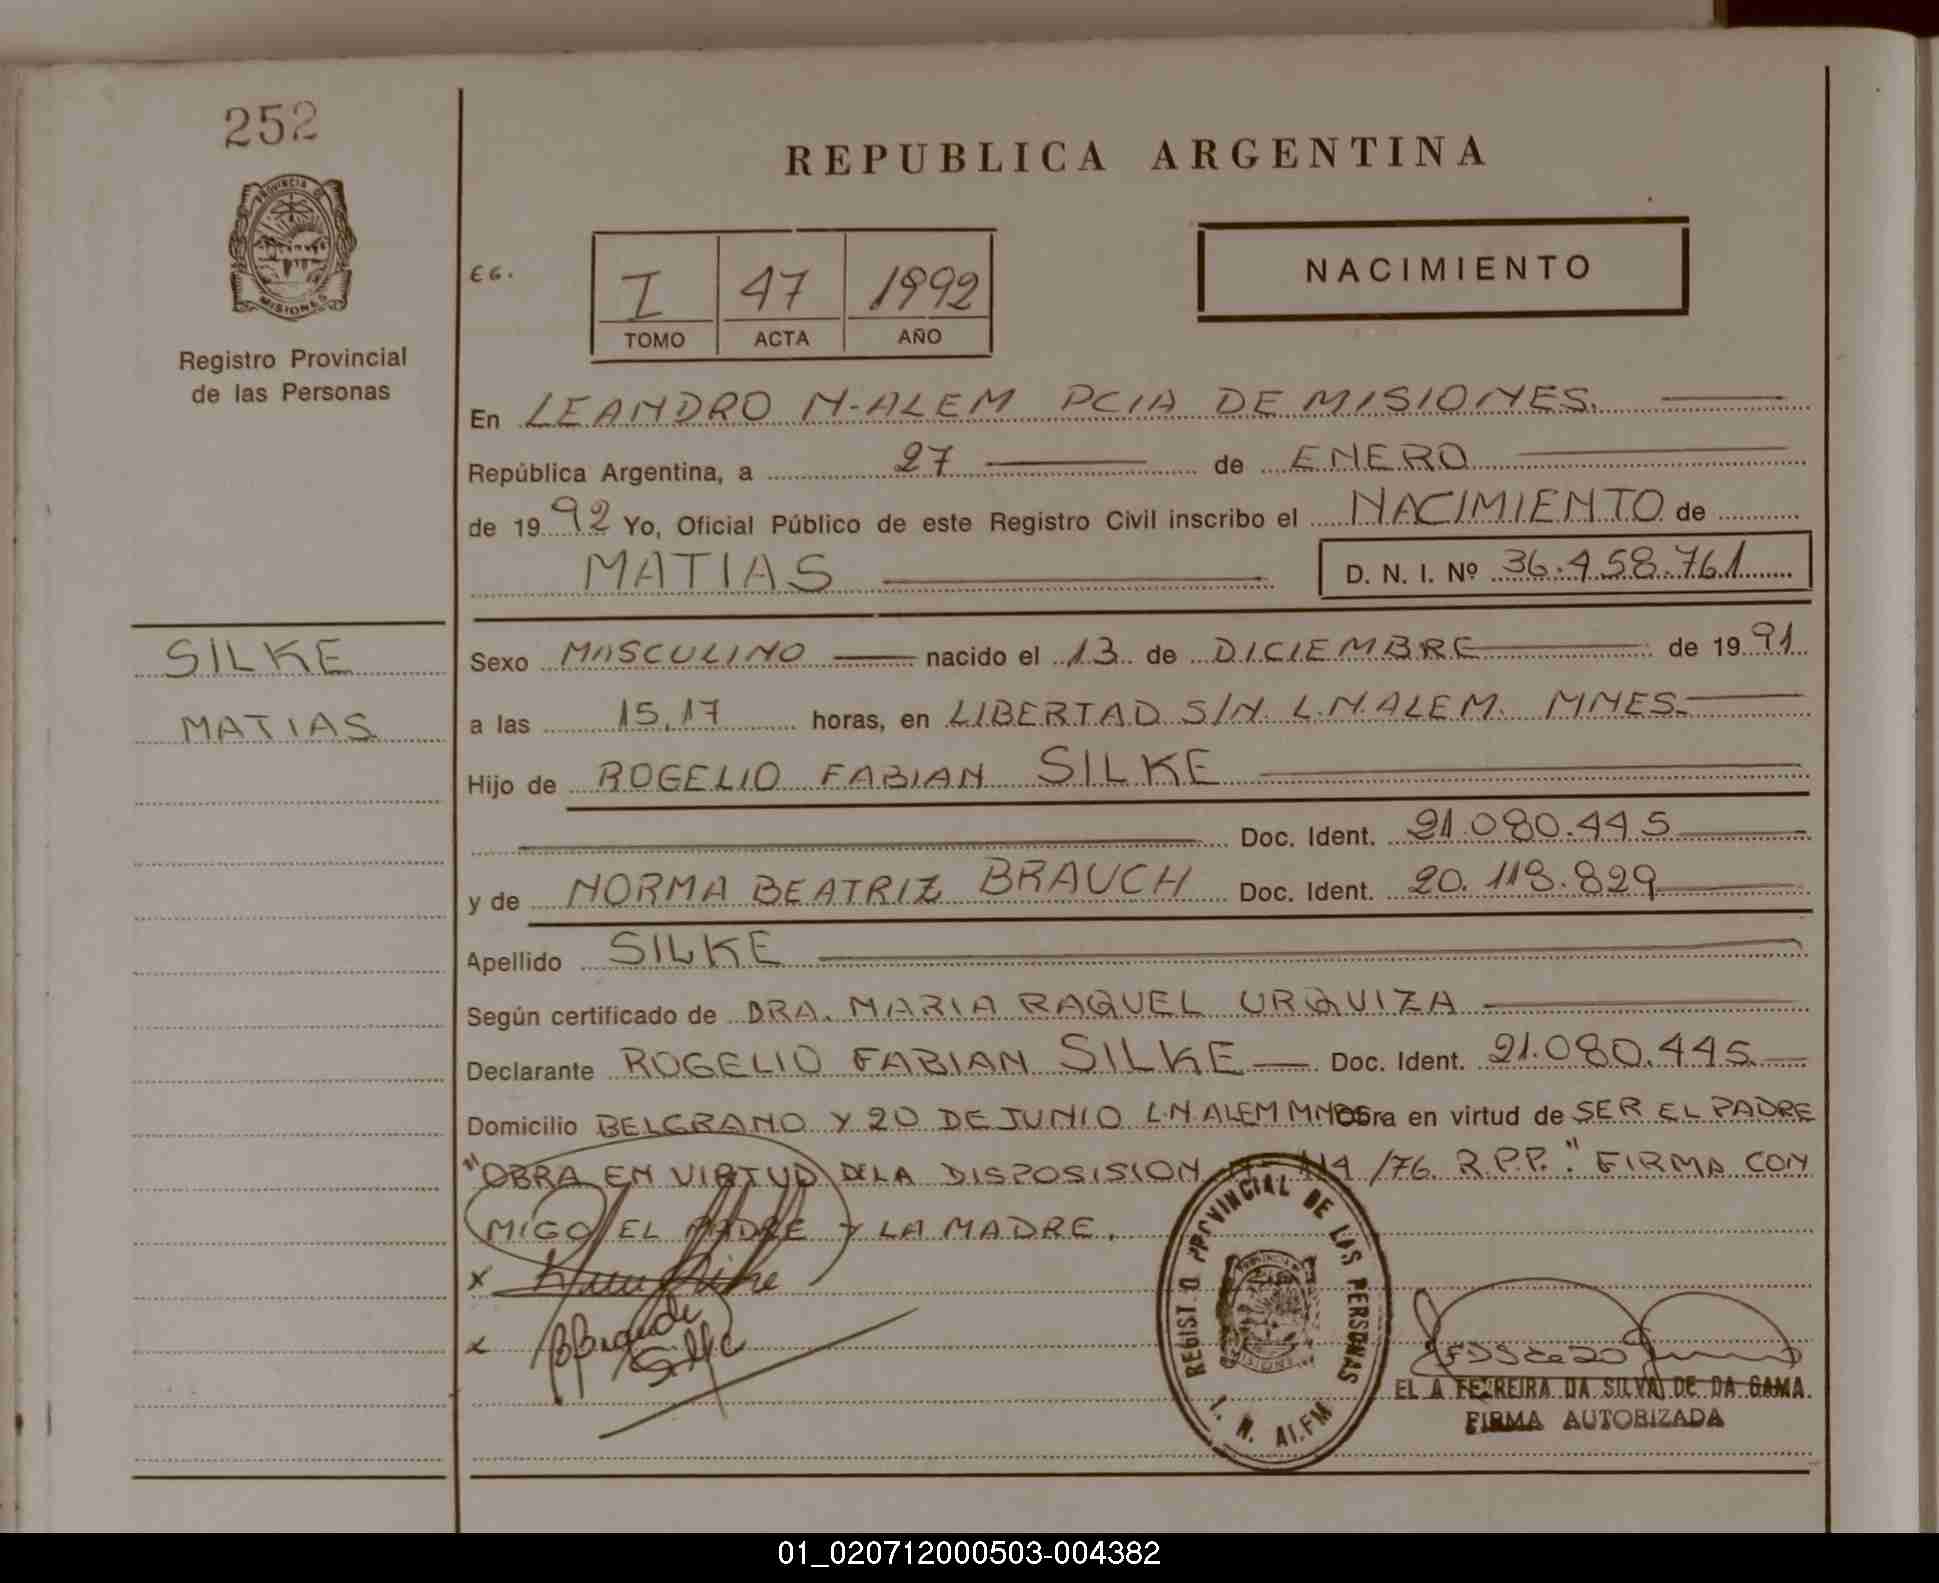 252
PROVINCIA DE
MISIONES
Registro Provincial
de las Personas
REPUBLICA ARGENTINA
EG.
I 47 1992
TOMO ACTA AÑO
NACIMIENTO
En LEANDRO N-ALEM PCIA DE MISIONES.
República Argentina, a 27 de ENERO
de 1992 Yo, Oficial Público de este Registro Civil inscribo el NACIMIENTO de
MATIAS D. N. I. Nº 36.458.761
SILKE
MATIAS
Sexo MASCULINO nacido el 13 de DICIEMBRE de 1991
a las 15,17 horas, en LIBERTAD S/N. L.N.ALEM. MNES.
Hijo de ROGELIO FABIAN SILKE
Doc. Ident. 21.080.445
y de NORMA BEATRIZ BRAUCH Doc. Ident. 20.118.829
Apellido SILKE
Según certificado de DRA. MARIA RAQUEL URQUIZA
Declarante ROGELIO FABIAN SILKE Doc. Ident. 21.080.445
Domicilio BELGRANO Y 20 DE JUNIO L.N.ALEM MNES Obra en virtud de SER EL PADRE
"OBRA EN VIRTUD DELA DISPOSISION /76. R.P.P." FIRMA CON
MIGO EL PADRE Y LA MADRE.
x
x
REGISTRO PROVINCIAL DE LAS PERSONAS
L. N. ALEM
FERREIRA DA SILVA DE DA GAMA
FIRMA AUTORIZADA
01_020712000503-004382